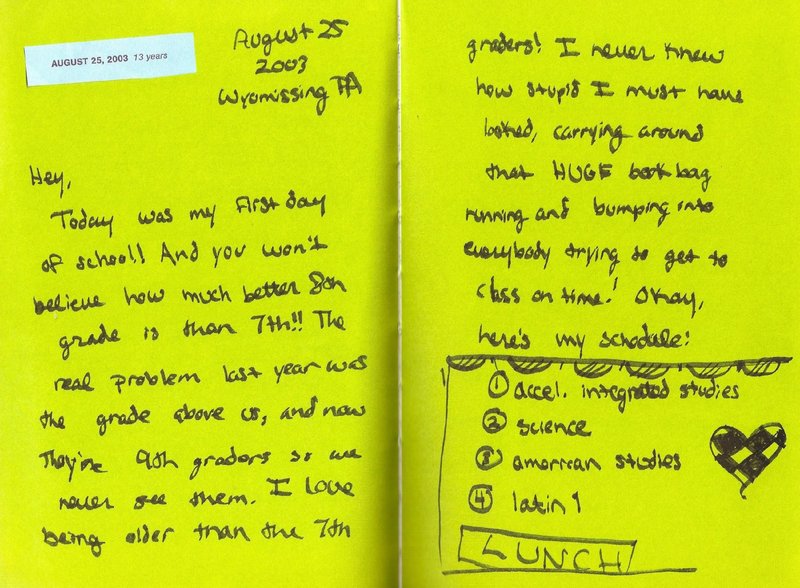 AUGUST 25, 2003 13 years
August 25
2003
Wyomissing PA
Hey,
Today was my first day
of school!! And you won't
believe how much better 8th
grade is than 7th!! The
real problem last year was
the grade above us, and now
they're 9th graders so we
never see them. I love
being older than the 7th
graders! I never knew
how stupid I must have
looked, carrying around
that HUGE book bag
running and bumping into
everybody trying to get to
class on time! Okay,
here's my schedule:
1 accel. integrated studies
2 science
3 american studies
4 latin 1
LUNCH